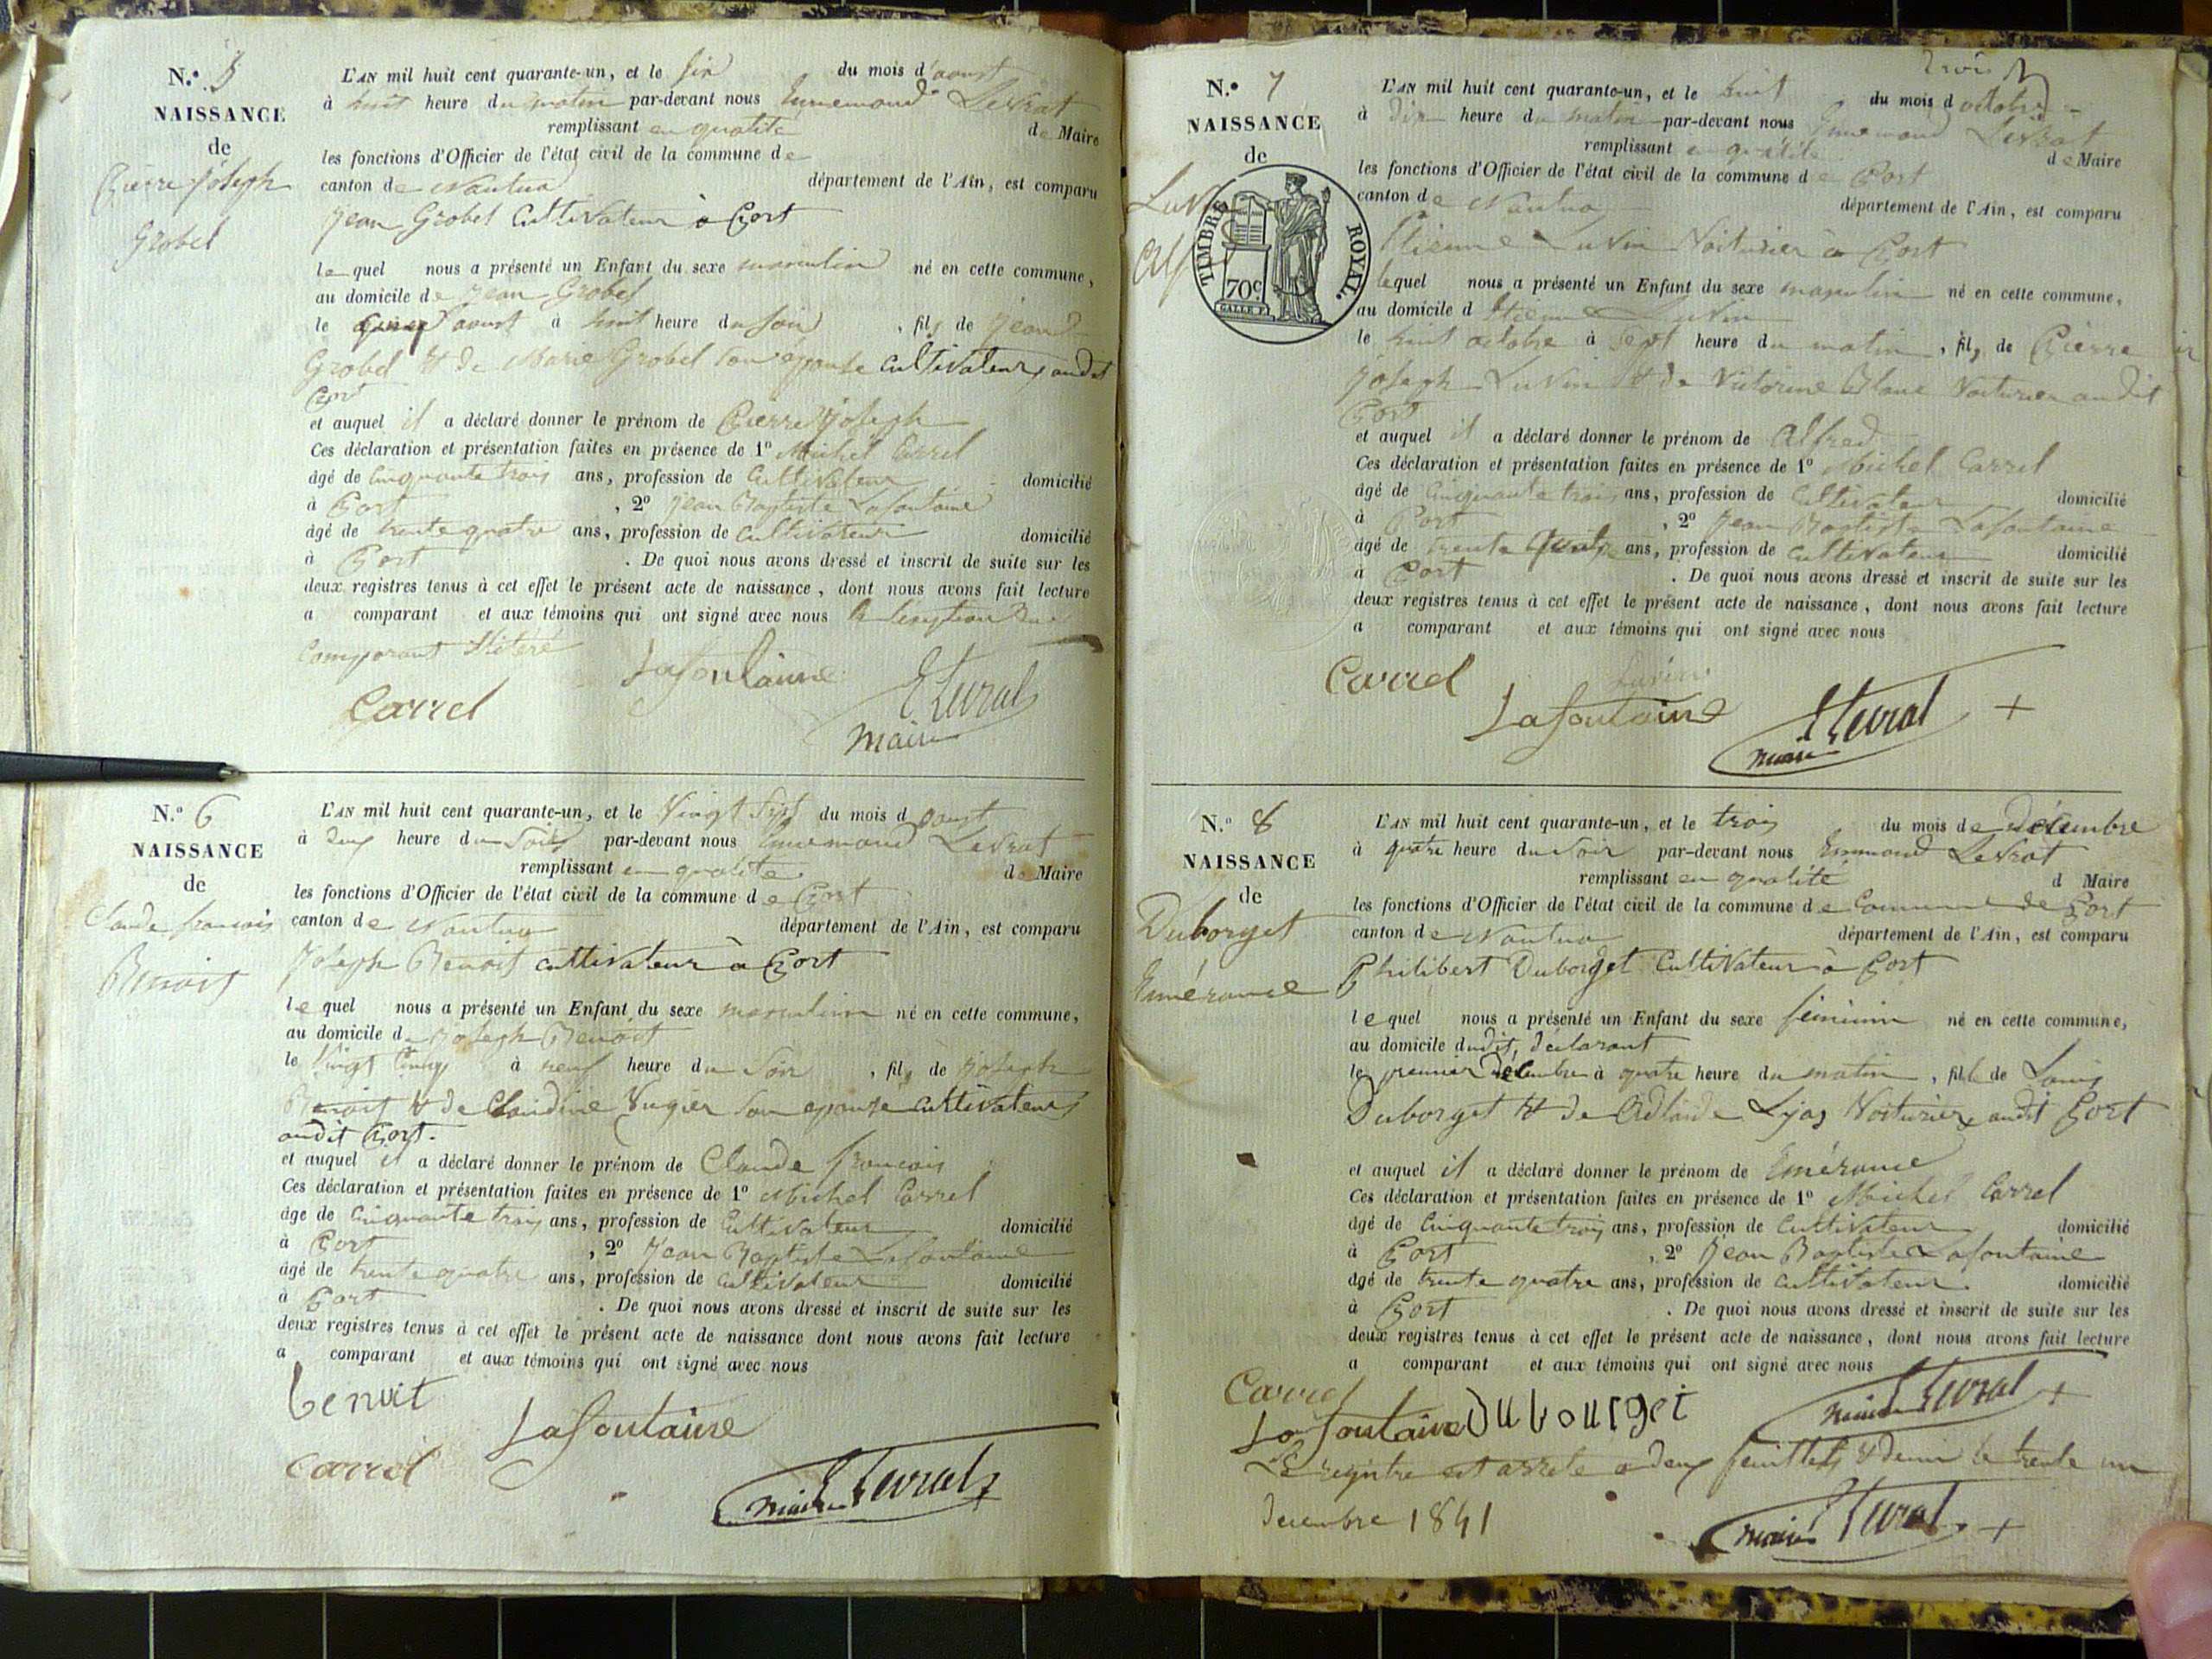 N.º 5
NAISSANCE
de
Pierre Joseph
Grobel
L'AN mil huit cent quarante-un, et le six du mois d'aoust
à huit heure du matin par-devant nous Ennemond Levrat
remplissant en qualité de Maire
les fonctions d'Officier de l'état civil de la commune de
canton de Nantua département de l'Ain, est comparu
Jean Grobel Cultivateur à Port
lequel nous a présenté un Enfant du sexe masculin né en cette commune,
au domicile de Jean Grobel
le cinq aoust à huit heure du soir, fils de Jean
Grobel & de Marie Grobel son épouse cultivateurs audit
Port
et auquel il a déclaré donner le prénom de Pierre Joseph
Ces déclaration et présentation faites en présence de 1º Michel Carrel
âgé de cinquante trois ans, profession de Cultivateur domicilié
à Port, 2º Jean Baptiste Lafontaine
âgé de trente quatre ans, profession de cultivateur domicilié
à Port. De quoi nous avons dressé et inscrit de suite sur les
deux registres tenus à cet effet le présent acte de naissance, dont nous avons fait lecture
a comparant et aux témoins qui ont signé avec nous
Comparant
Lafontaine
Carrel
Maire
N.º 6
NAISSANCE
de
Claude francois
Benoit
L'AN mil huit cent quarante-un, et le Vingt Sept du mois d aoust
à deux heure du Soir par-devant nous Ennemond Levrat
remplissant en qualité de Maire
les fonctions d'Officier de l'état civil de la commune de Port
canton de Nantua département de l'Ain, est comparu
Joseph Benoit cultivateur à Port
lequel nous a présenté un Enfant du sexe masculin né en cette commune,
au domicile de Joseph Benoit
le Vingt Cinq à neuf heure du Soir, fils de Joseph
Benoit & de Claudine Vugier son epouse cultivateurs
audit Port.
et auquel il a déclaré donner le prénom de Claude francois
Ces déclaration et présentation faites en présence de 1º Michel Carrel
âge de Cinquante trois ans, profession de Cultivateur domicilié
à Port, 2º Jean Baptiste Lafontaine
âgé de trente quatre ans, profession de cultivateur domicilié
à Port. De quoi nous avons dressé et inscrit de suite sur les
deux registres tenus à cet effet le présent acte de naissance dont nous avons fait lecture
a comparant et aux témoins qui ont signé avec nous
benoit
Lafontaine
carrel
maire ELevrat
trois
N.º 7
NAISSANCE
de
TIMBRE ROYAL.
70c
L'AN mil huit cent quarante-un, et le huit du mois d octobre
à Dix heure du matin par-devant nous Ennemond Levrat
remplissant en qualité de Maire
les fonctions d'Officier de l'état civil de la commune de Port
canton de Nantua département de l'Ain, est comparu
Etienne Luvin Voiturier à Port
lequel nous a présenté un Enfant du sexe masculin né en cette commune,
au domicile d Etienne Luvin
le huit octobre à Sept heure du matin, fils de Pierre
Joseph Luvin & de Victorine Blanc Voiturier audit
Port
et auquel il a déclaré donner le prénom de Alfred
Ces déclaration et présentation faites en présence de 1º Michel Carrel
âgé de cinquante trois ans, profession de Cultivateur domicilié
à Port, 2º Jean Baptiste Lafontaine
âgé de trente quatre ans, profession de cultivateur domicilié
à Port. De quoi nous avons dressé et inscrit de suite sur les
deux registres tenus à cet effet le présent acte de naissance, dont nous avons fait lecture
a comparant et aux témoins qui ont signé avec nous
Carrel
Luvin
Lafontaine
maire ELevrat +
N.º 8
NAISSANCE
de
Duborget
Emérance
L'AN mil huit cent quarante-un, et le trois du mois de Décembre
à quatre heure du Soir par-devant nous Emmond Levrat
remplissant en qualité d Maire
les fonctions d'Officier de l'état civil de la commune de Commune de Port
canton de Nantua département de l'Ain, est comparu
Philibert Duborget Cultivateur à Port
lequel nous a présenté un Enfant du sexe féminin né en cette commune,
au domicile dudit, déclarant
le premier Décembre à quatre heure du matin, fille de Louis
Duborget & de Adlaide Lyas Voiturier audit Port
et auquel il a déclaré donner le prénom de Emérance
Ces déclaration et présentation faites en présence de 1º Michel Carrel
âgé de Cinquante trois ans, profession de Cultivateur domicilié
à Port, 2º Jean Baptiste Lafontaine
âgé de trente quatre ans, profession de cultivateur domicilié
à Port. De quoi nous avons dressé et inscrit de suite sur les
deux registres tenus à cet effet le présent acte de naissance, dont nous avons fait lecture
a comparant et aux témoins qui ont signé avec nous
Carrel
Lafontaine Dubourget
maire ELevrat +
Le registre est arrêté a deux feuillets & demi le trente un
decembre 1841
maire ELevrat +